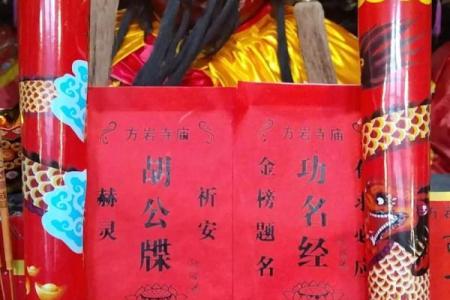 方岩寺庙
胡公牒
祈安
赫灵
方岩寺庙
功名经
金榜题名
求必应